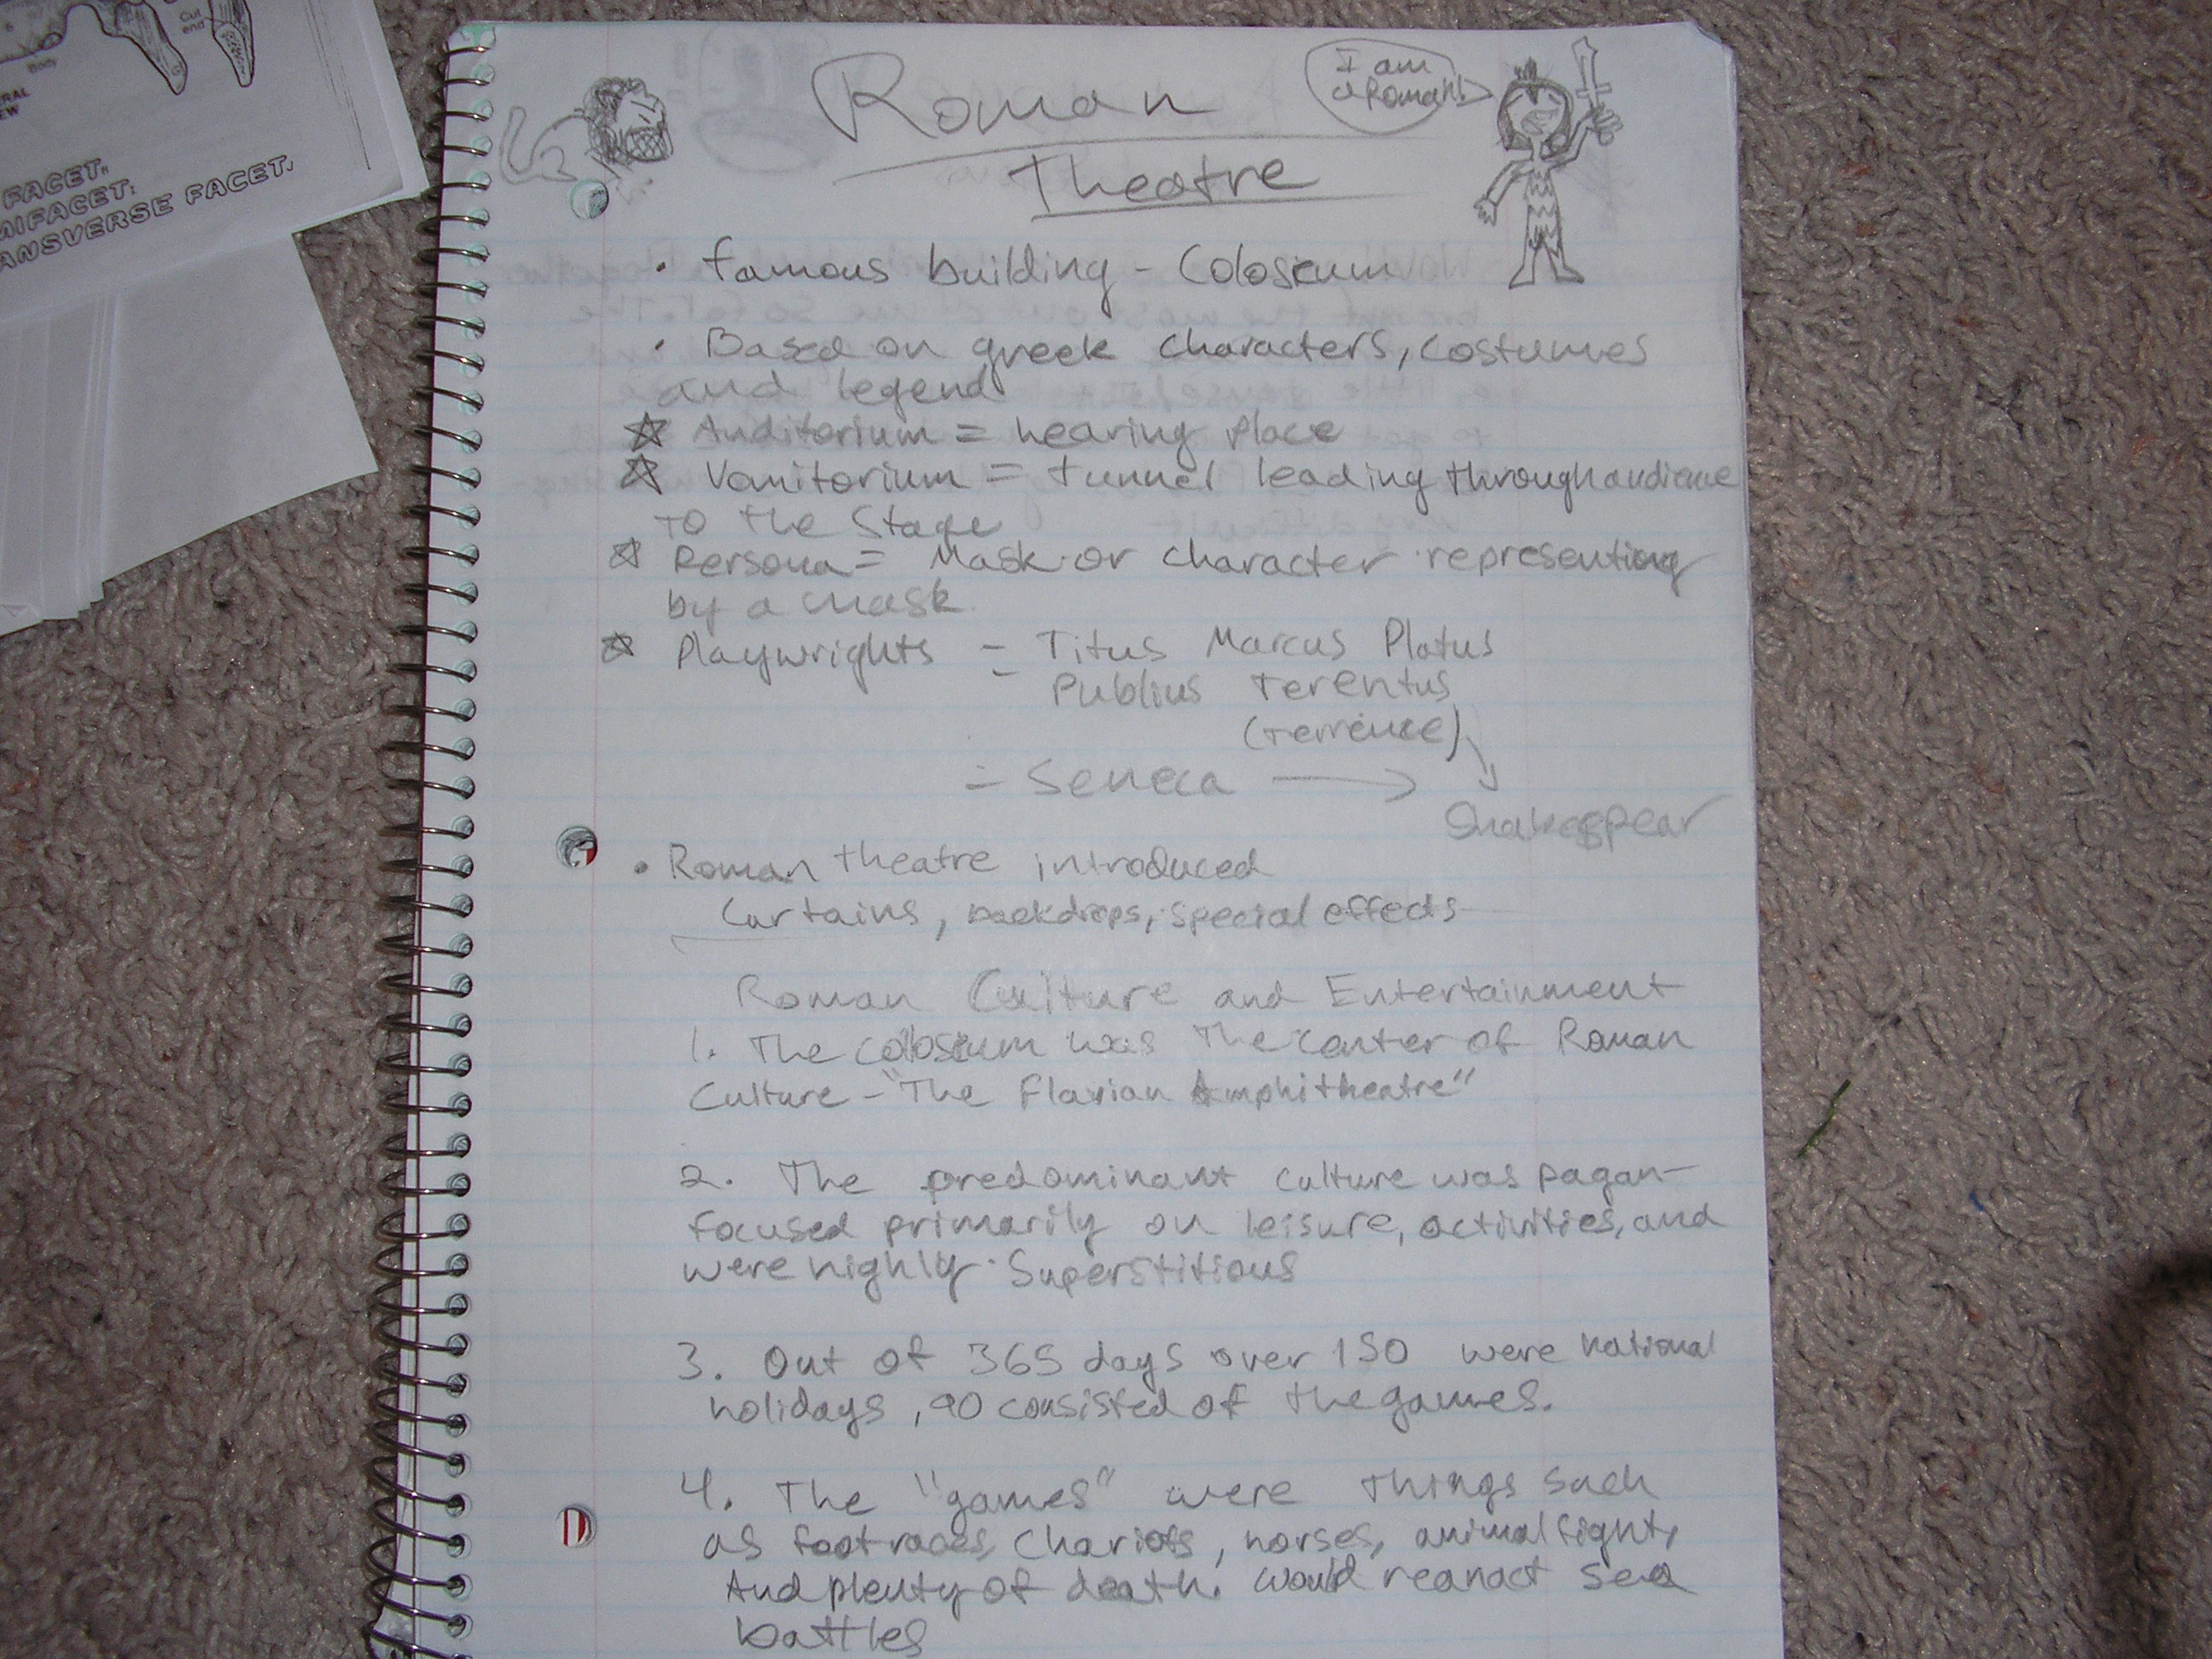 Cut
end
Body
RAL
EW
FACET.
MIFACET:
ANSVERSE FACET.
Roman
Theatre
I am
a Roman!
• famous building - Coloseum
• Based on greek characters, costumes
and legend
☆ Auditorium = hearing place
☆ Vomitorium = tunnel leading through audience
to the stage
☆ Persona = Mask or character representiong
by a mask
☆ Playwrights - Titus Marcus Platus
- Publius Terentus
(Terrence)
- Seneca →
Shakespear
• Roman theatre introduced
Curtains, backdrops, special effects
Roman Culture and Entertainment
1. The coloseum was the center of Roman
Culture - "The Flavian Amphitheatre"
2. The predominant culture was pagan-
focused primarily on leisure, activities, and
were highly superstitious
3. Out of 365 days over 150 were national
holidays, 90 consisted of the games.
4. The "games" were things such
as footraces, chariots, horses, animal fight,
And plenty of death. Would reanact sea
battles